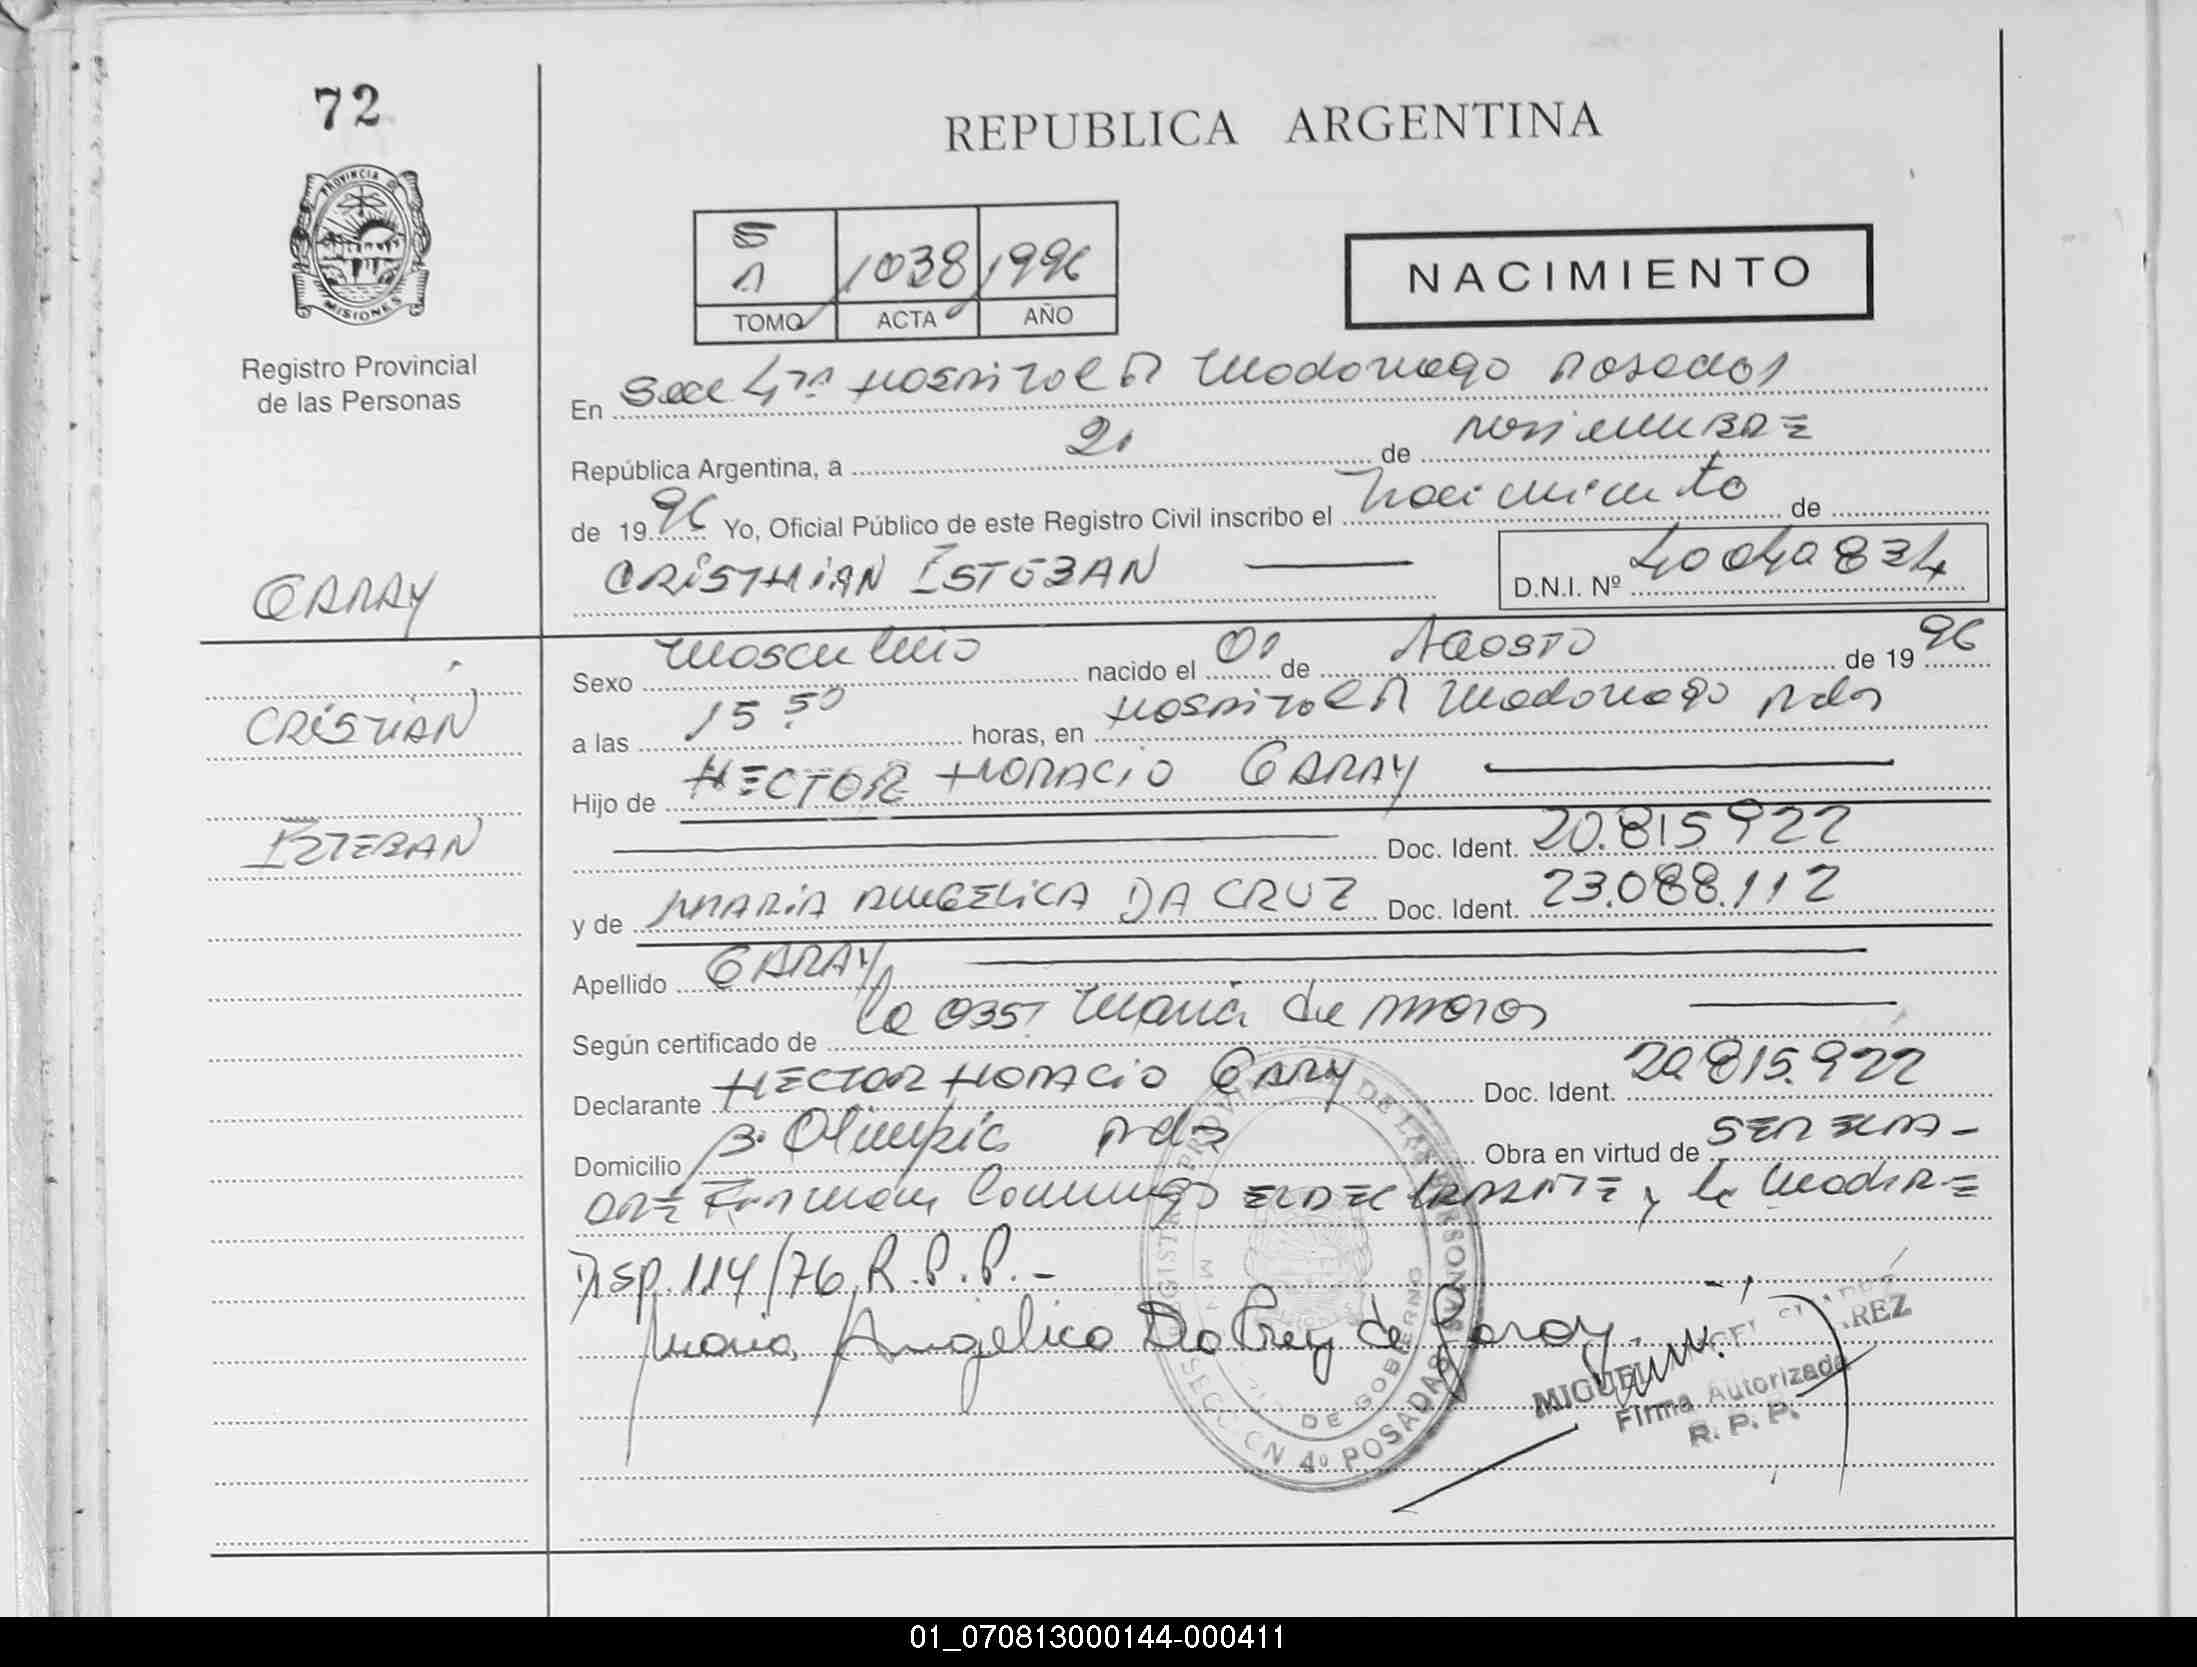 72
REPUBLICA ARGENTINA
PROVINCIA DE
MISIONES
Registro Provincial
de las Personas
5
1 1038 1996
TOMO ACTA AÑO
NACIMIENTO
En Secc 4ta Hospital R Madariaga Posadas
República Argentina, a 21 de noviembre
de 1996 Yo, Oficial Público de este Registro Civil inscribo el nacimiento de
CRISTHIAN ESTEBAN
D.N.I. Nº 40040834
GARAY
CRISTIAN
ESTEBAN
Sexo masculino nacido el 01 de Agosto de 1996
a las 15 50 horas, en Hospital R Madariaga Pdas
Hijo de HECTOR HORACIO GARAY
Doc. Ident. 20.815922
y de MARIA ANGELICA DA CRUZ Doc. Ident. 23.088.112
Apellido GARAY
Según certificado de la Obst Maria de
Declarante HECTOR HORACIO GARY Doc. Ident. 20815.922
Domicilio B. Olimpic Pdas Obra en virtud de SER EL PA-
DRE Firman Conmigo EL DECLARANTE y la Madre
Disp. 114/76 R.P.P.-
Maria Angelica Da Cruz de Garay
DE LAS PERSONAS
DE GOBIERNO
SECCION 4º POSADAS
MIGUEL REZ
Firma Autorizada
R. P. P.
01_070813000144-000411